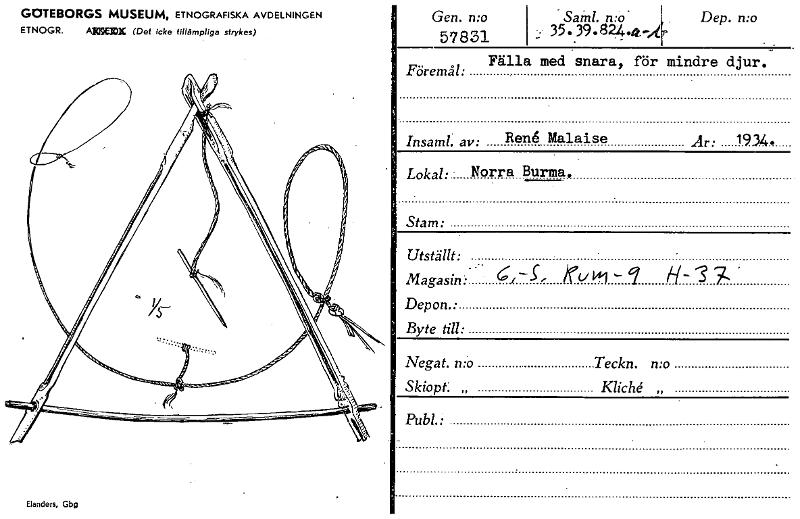 GÖTEBORGS MUSEUM, ETNOGRAFISKA AVDELNINGEN
ETNOGR. (Det icke tillämpliga strykes)
1/5
Elanders, Gbg
Gen. n:o Saml. n:o Dep. n:o
57831 35.39.824.a-b
Föremål: Fälla med snara, för mindre djur.
Insaml. av: René Malaise År: 1934.
Lokal: Norra Burma.
Stam:
Utställt:
Magasin: G.-S. Rum-9 H-37
Depon.:
Byte till:
Negat. n:o Teckn. n:o
Skiopt. „ Kliché „
Publ.: